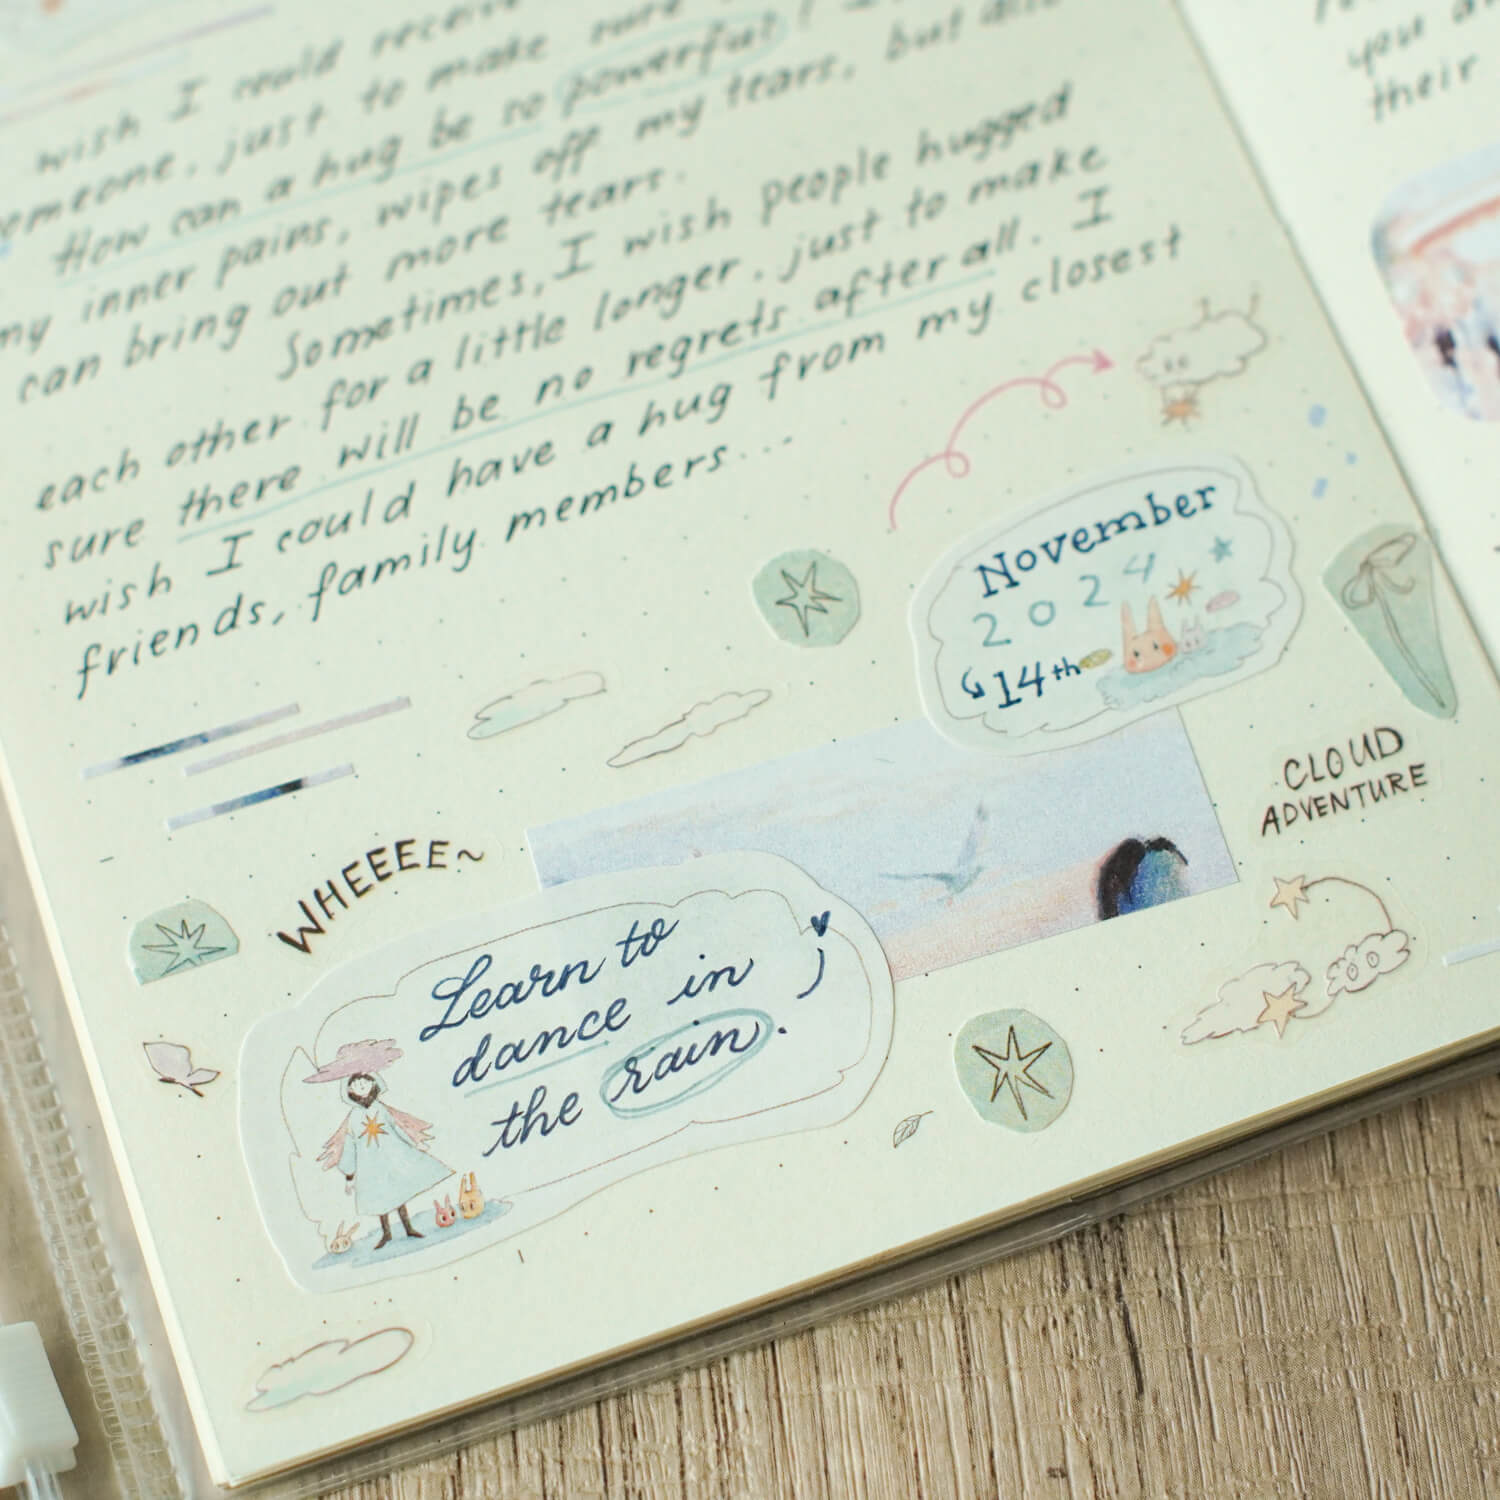 wish I could receive
someone, just to make sure
How can a hug be so powerful!
my inner pains, wipes off my tears, but also
can bring out more tears.
Sometimes, I wish people hugged
each other for a little longer, just to make
sure there will be no regrets after all. I
wish I could have a hug from my closest
friends, family members...
you
their
November
2024
14th
CLOUD
ADVENTURE
WHEEEE~
Learn to
dance in
the rain.